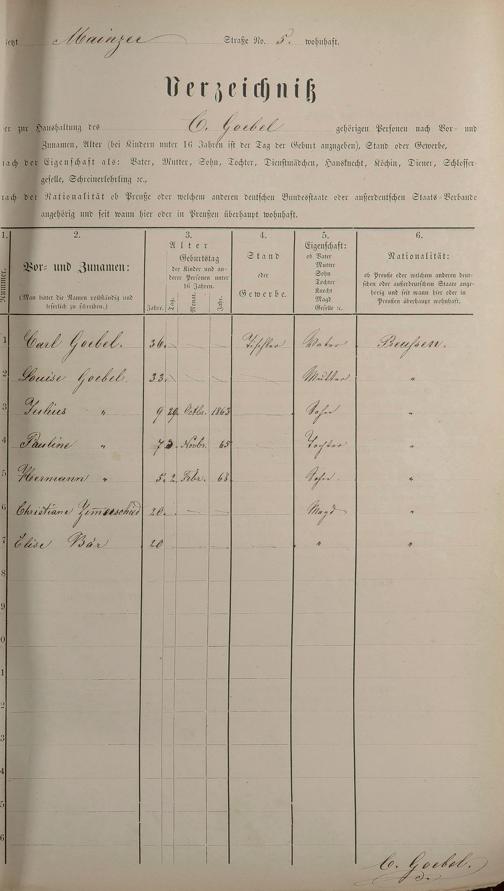 jetzt Mainzer Straße No. 5. wohnhaft.
Verzeichniß
er zur Haushaltung des C. Goebel gehörigen Personen nach Vor- und
Zunamen, Alter (bei Kindern unter 16 Jahren ist der Tag der Geburt anzugeben), Stand oder Gewerbe,
nach der Eigenschaft als: Vater, Mutter, Sohn, Tochter, Dienstmädchen, Hausknecht, Köchin, Diener, Schlosser-
geselle, Schreinerlehrling ꝛc.,
nach der Nationalität ob Preuße oder welchem anderen deutschen Bundesstaate oder außerdeutschen Staats-Verbande
angehörig und seit wann hier oder in Preußen überhaupt wohnhaft.
1. 2. 3. 4. 5. 6.
Nummer.
Vor- und Zunamen:
(Man bittet die Namen vollständig und
leserlich zu schreiben.)
Alter
Geburtstag
der Kinder und an-
derer Personen unter
16 Jahren.
Jahre. Tag. Monat. Jahr.
Stand
oder
Gewerbe.
Eigenschaft:
ob Vater
Mutter
Sohn
Tochter
Knecht
Magd
Geselle ꝛc.
Nationalität:
ob Preuße oder welchem anderen deut-
schen oder außerdeutschen Staate ange-
hörig und seit wann hier oder in
Preußen überhaupt wohnhaft.
1 Carl Goebel. 36. Tischler Vater Preussen.
2 Louise Goebel 33. Mutter "
3 Julius " 9 29. Octbr. 1863 Sohn "
4 Pauline " 7 3. Novbr. 65 Tochter "
5 Hermann " 5. 2. Febr. 68 Sohn "
6 Christiane 20. Magd "
7 Elise Bär 20 " "
8
9
0
1
2
3
4
5
6
C. Goebel.